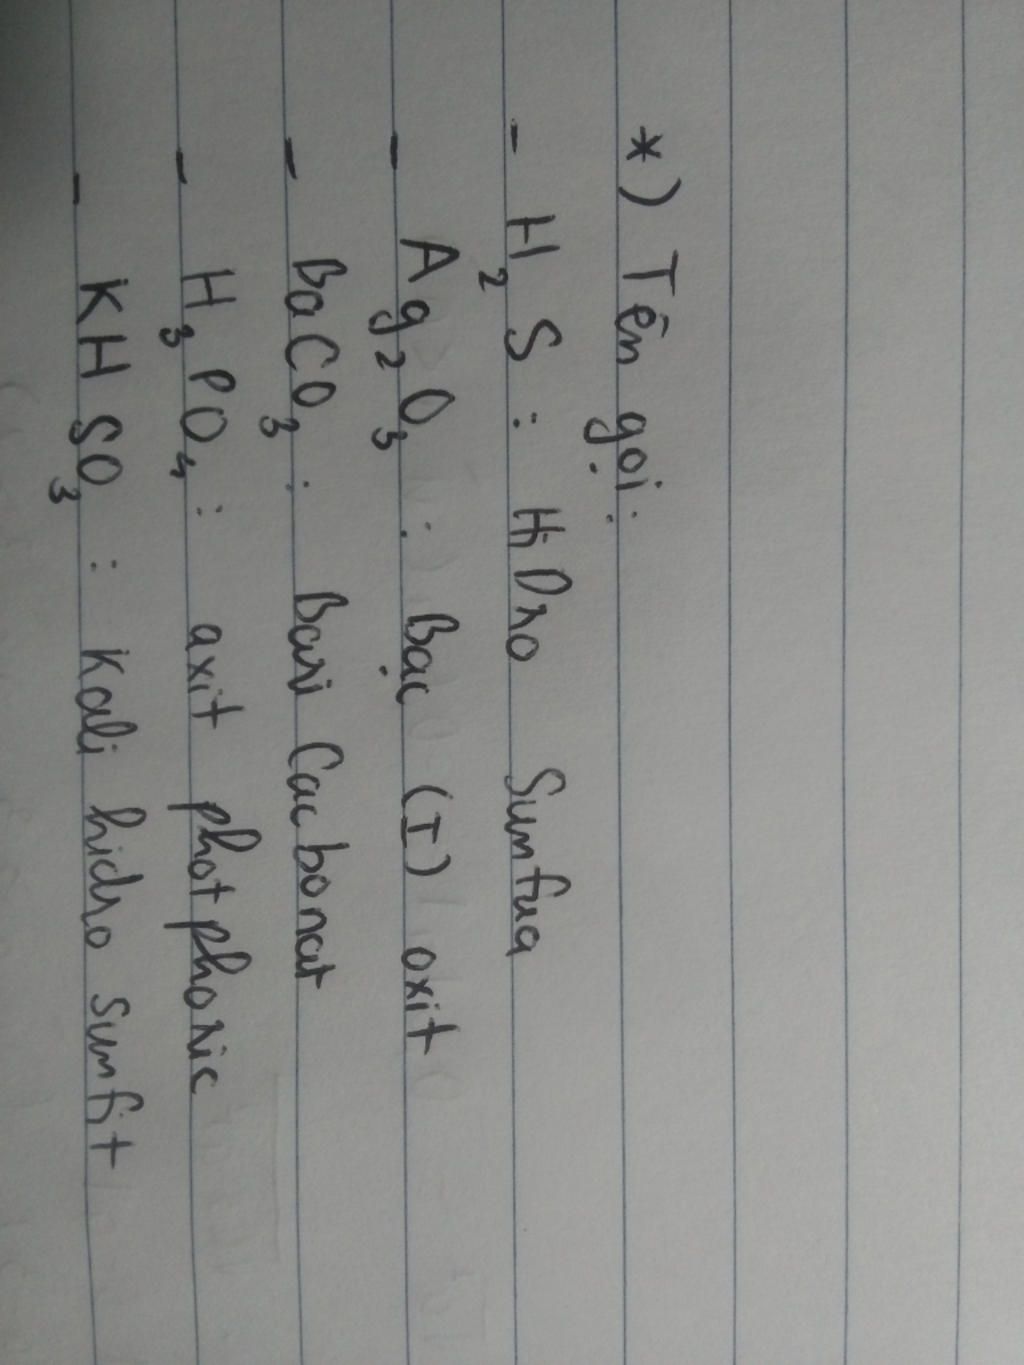 *) Tên gọi:
- H₂S : HiDro Sunfua
- Ag₂O₃ : Bạc (I) oxit
- BaCO₃ : Bari Cacbonat
- H₃PO₄ : axit photphoric
- KHSO₃ : Kali hidro sunfit